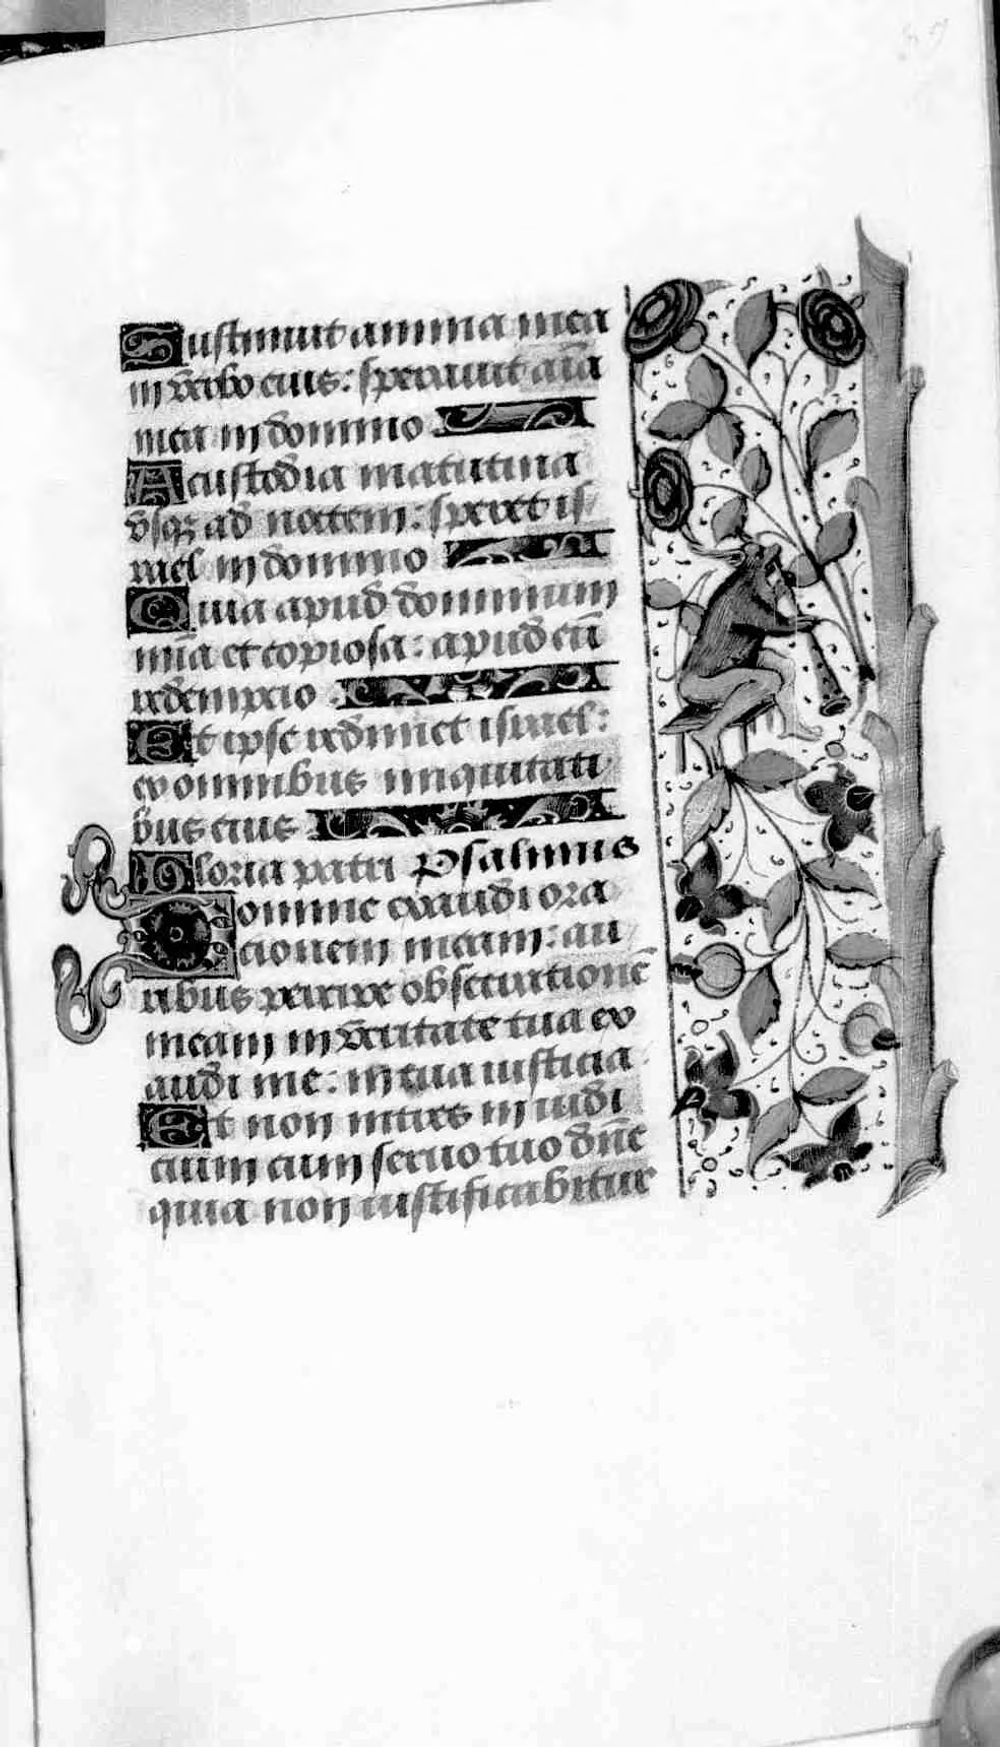 Sustinuit anima mea
in verbo eius: speravit aīa
mea in domino
A custodia matutina
vsqʒ ad noctem: speret is
rael in domino
Quia apud dominum
mīa et copiosa: apud eū
redempcio
Et ipse redimet israel:
ex omnibus iniquitati
bus eius
Gloria patri Psalmus
Domine exaudi ora
cionem meam: au
ribus percipe obsecrationē
meam in veritate tua ex
audi me: in tua iusticia
Et non intres in iudi
cium cum seruo tuo dn̄e
quia non iustificabitur